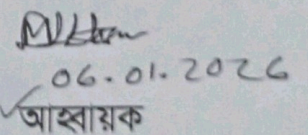 06.01.2026
আহ্বায়ক